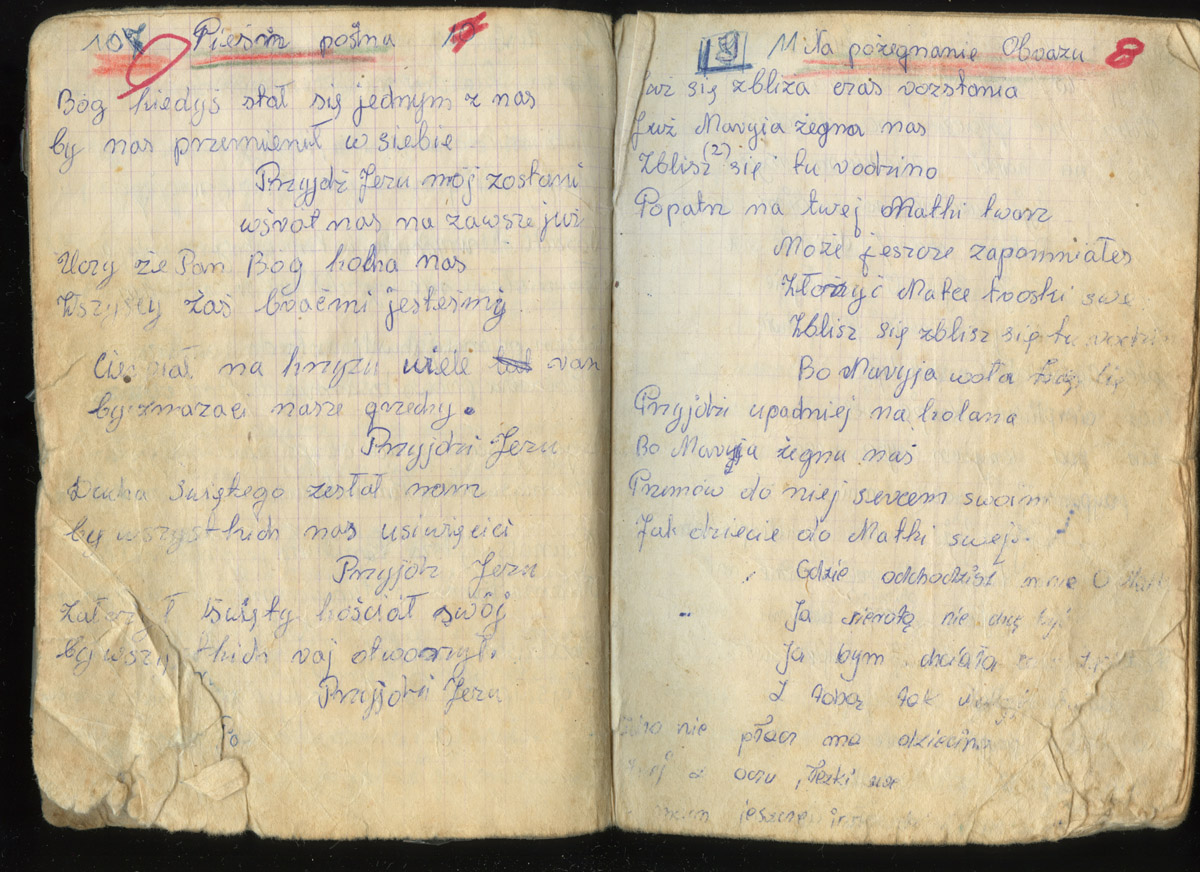 107 Pieśń postna 10
Bóg kiedyś stał się jednym z nas
by nas przemienił w siebie
Przyjdź Jezu mój zostani
wśrot nas na zawsze już
Uczy że Pan Bóg kocha nas
Wszyscy zaś braćmi jesteśmy.
Cierpiał na krzyżu wiele ran
by zmazaci nasze grzechy.
Przyjdzi Jezu
Ducha Świętego zesłał nam
by wszystkich nas uświęcici
Przyjdz Jezu
Założył Święty kościół swój
by wszystkich raj otworzył.
Przyjdzi Jezu
9 11 Na pożegnanie Obrazu 8
Już się zbliża czas rozstania
Już Maryja żegna nas
Zblisz (2) się tu rodzino
Popatrz na twej Matki twarz
Może jeszcze zapomniałeś
Złożyć Matce troski swe
Zblisz się zblisz się tu
Bo Maryja woła
Przyjdzi upadniej na kolana
Bo Maryja żegna nas
Przemów do niej sercem swoim
Jak dziecie do Matki swej.
Gdzie odchodzisz
Ja sierotą nie chcę być
Ja bym chciała
Z tobą tak
nie płacz ma dziecino
z oczu łezki
jeszcze